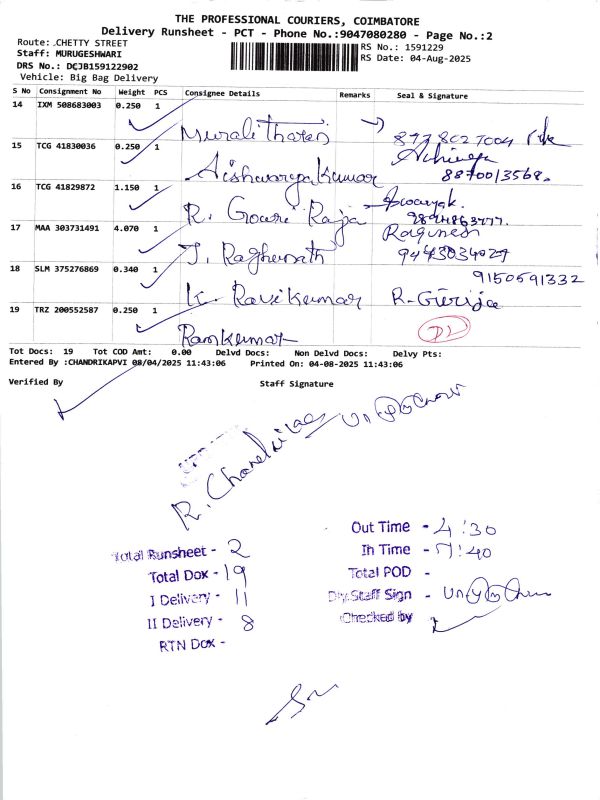 THE PROFESSIONAL COURIERS, COIMBATORE
Delivery Runsheet - PCT - Phone No.:9047080280 - Page No.:2
Route: CHETTY STREET
Staff: MURUGESHWARI
DRS No.: DCJB159122902
Vehicle: Big Bag Delivery
RS No.: 1591229
RS Date: 04-Aug-2025
S No Consignment No Weight PCS Consignee Details Remarks Seal & Signature
14 IXM 508683003 0.250 1
Muralitharan
15 TCG 41830036 0.250 1
Aishwarya Kumar 8870013568.
16 TCG 41829872 1.150 1
R. Gowri Raja
17 MAA 303731491 4.070 1
J. Raghunath 9443034027
18 SLM 375276869 0.340 1 9150591332
K. Ravikumar R. Girija
19 TRZ 200552587 0.250 1
Ramkumar
Tot Docs: 19 Tot COD Amt: 0.00 Delvd Docs: Non Delvd Docs: Delvy Pts:
Entered By :CHANDRIKAPVI 08/04/2025 11:43:06 Printed On: 04-08-2025 11:43:06
Verified By Staff Signature
Total Runsheet - 2
Total Dox - 19
I Delivery - 11
II Delivery - 8
RTN Dox -
Out Time - 4:30
In Time - 7:40
Total POD -
Dly.Staff Sign -
Checked by